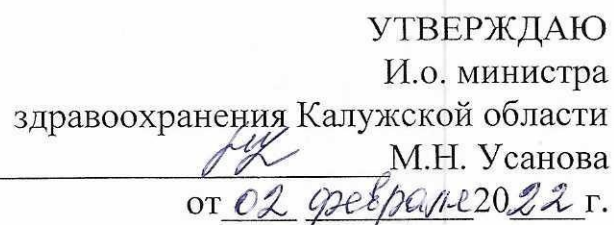 УТВЕРЖДАЮ
И.о. министра
здравоохранения Калужской области
М.Н. Усанова
от 02 февраля 2022 г.